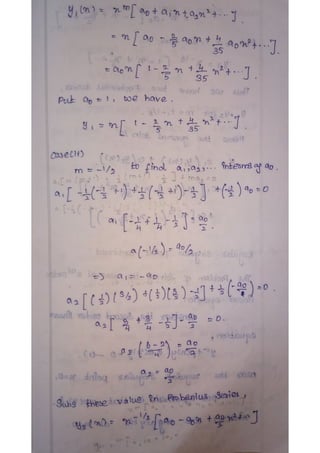 y₁(x) = x^m [a₀ + a₁x + a₂x² + ...]
= x [a₀ - 2/5 a₀x + 4/35 a₀x² + ...]
= a₀x [1 - 2/5 x + 4/35 x² + ...]
Put a₀ = 1, we have.
y₁ = x [1 - 2/5 x + 4/35 x² + ...]
Case(ii)
m = -1/2 to find a₁, a₂, ... interms of a₀.
a₁ [-1/2 (-1/2 + 1) + 1/2 (-1/2 + 1) - 1/2] + (-1/2) a₀ = 0
a₁ [-1/4 + 1/4 - 1/2] = a₀/2
a(-1/2) = a₀/2
=> a₁ = -a₀
a₂ [(1/2) (3/2) + (1/2) (3/2) - 1/2] + 1/2 (-a₀) = 0.
a₂ [ - 1/2] - a₀/2 = 0.
a₂ (6-2/4) = a₀/2
a₂ = a₀/2
Subs these value in Frobenius Series,
y₂(x) = x^-1/2 [a₀ - a₀x + a₀/2 x² + ...]